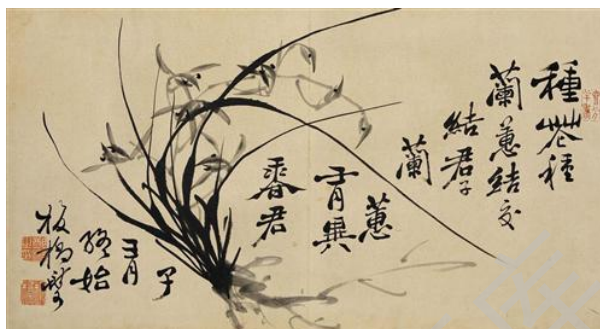 種花種
蘭蕙結交
結君子
蘭
蕙
有異
香君
子
有
終始
板橋燮